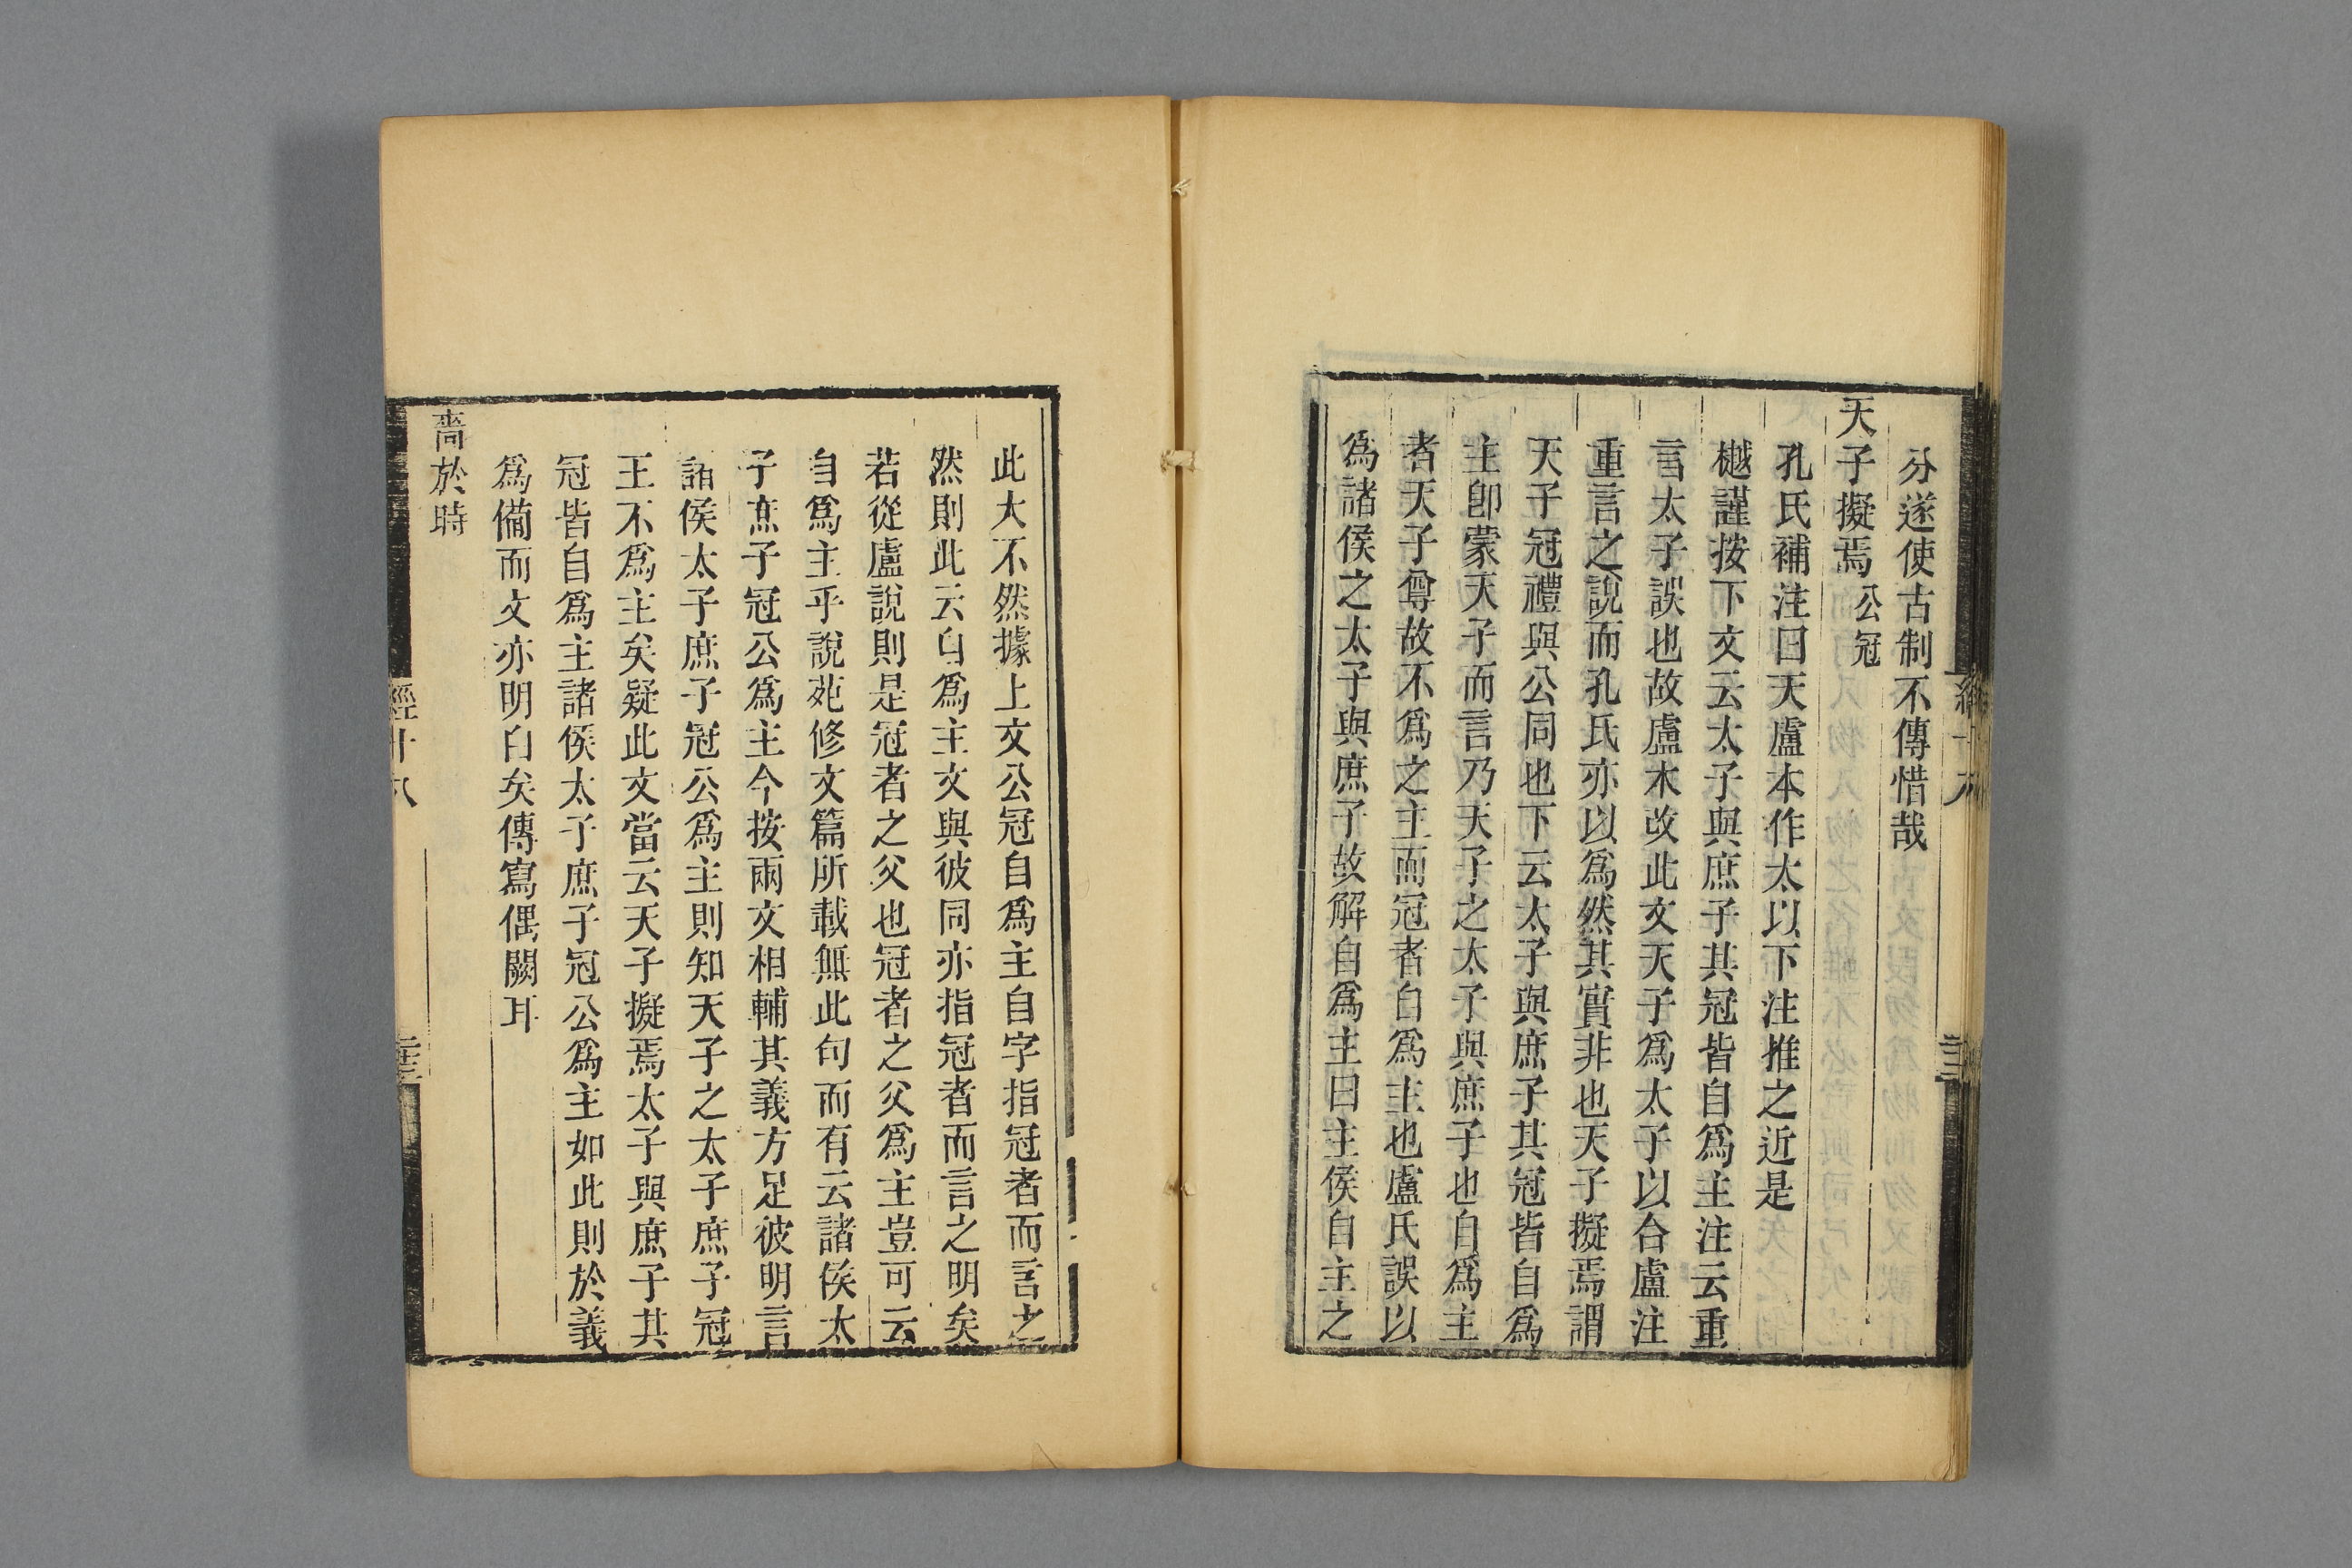 分遂使古制不傳惜哉
天子擬焉公冠
孔氏補注曰天盧本作太以下注推之近是
樾謹按下文云太子與庶子其冠皆自爲主注云重
言太子誤也故盧木改此文天子爲太子以合盧注
重言之說而孔氏亦以爲然其實非也天子擬焉謂
天子冠禮與公同也下云太子與庶子其冠皆自爲
主卽蒙天子而言乃天子之太子與庶子也自爲主
者天子尊故不爲之主而冠者自爲主也盧氏誤以
爲諸侯之太子與庶子故解自爲主曰主侯自主之
此大不然據上文公冠自爲主自字指冠者而言之
然則此云自爲主文與彼同亦指冠者而言之明矣
若從盧說則是冠者之父也冠者之父爲主豈可云
自爲主乎說苑修文篇所載無此句而有云諸侯太
子庶子冠公爲主今按兩文相輔其義方足彼明言
諸侯太子庶子冠公爲主則知天子之太子庶子冠
王不爲主矣疑此文當云天子擬焉太子與庶子其
冠皆自爲主諸侯太子庶子冠公爲主如此則於義
爲備而文亦明白矣傳寫偶闕耳
嗇於時
經十八